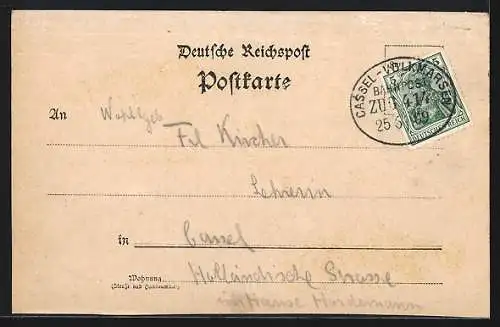 Deutsche Reichspost
Postkarte
CASSEL-VOLKMARSEN
BAHNPOST
ZUG 417
25 5 09
DEUTSCHES REICH
An
Wohlgeb
Frl Kircher
Lehrerin
in Cassel
Wohnung
(Straße und Hausnummer)
Holländische Strasse
im Hause Hindemann